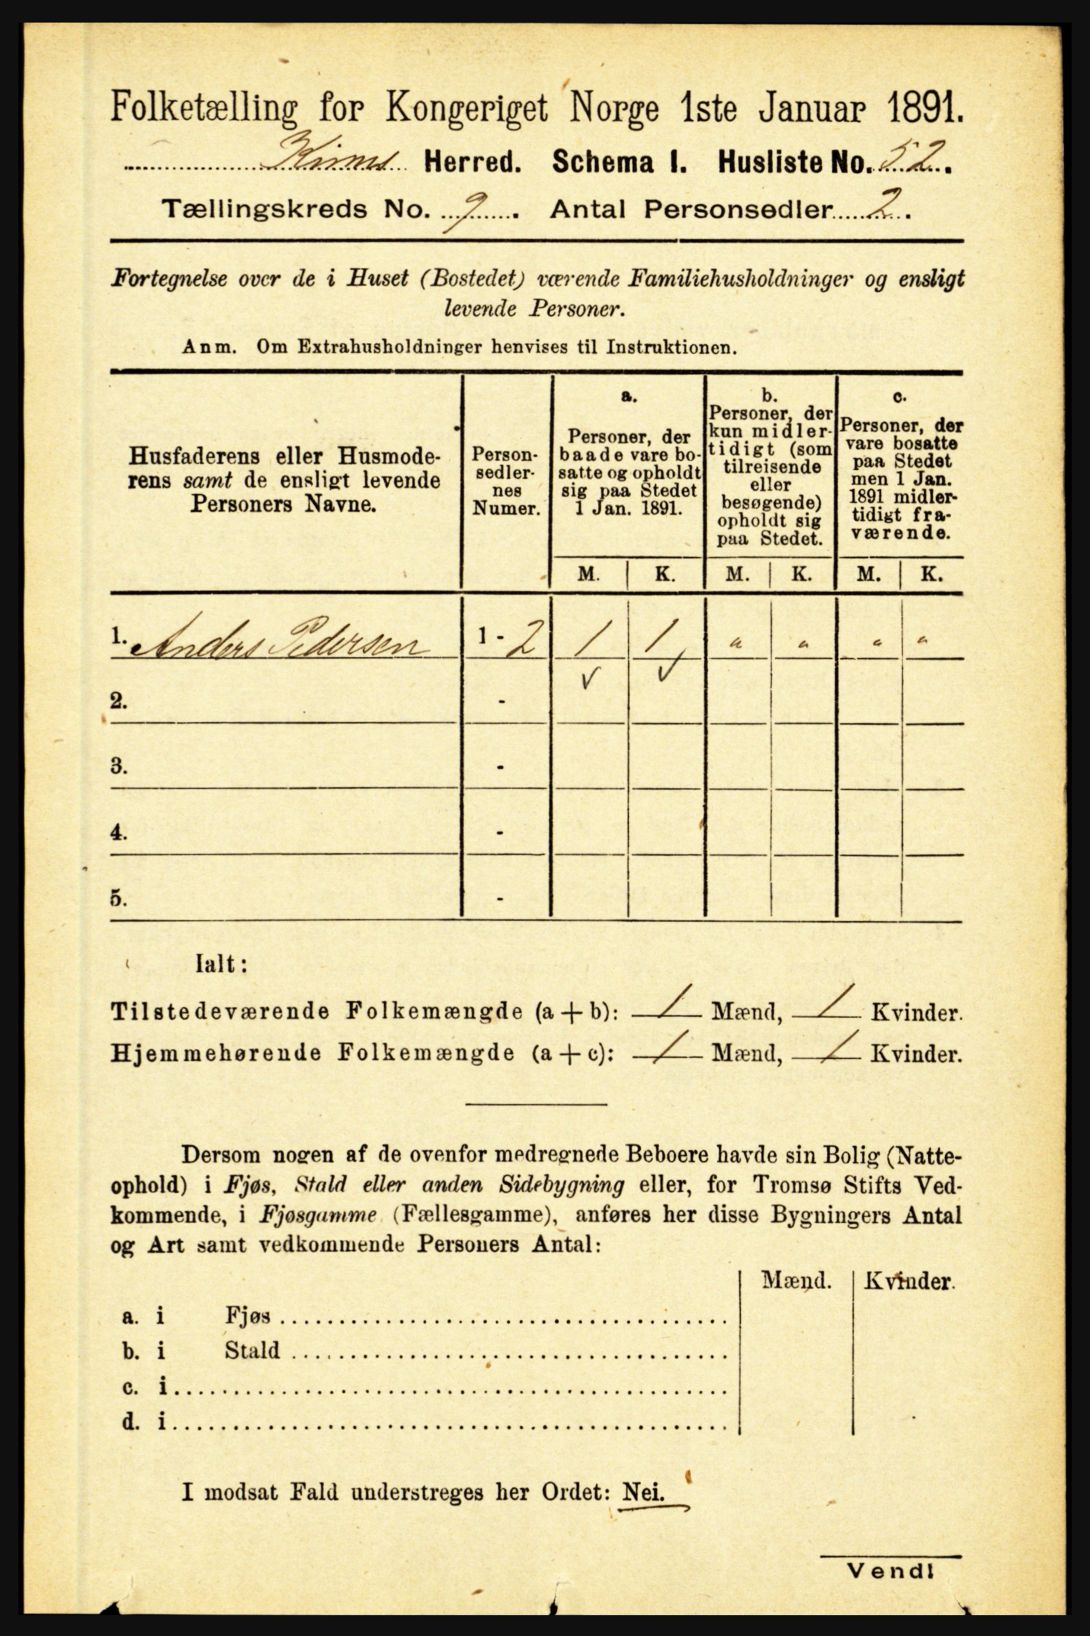 Folketælling for Kongeriget Norge 1ste Januar 1891.
Kinns Herred. Schema I. Husliste No. 52.
Tællingskreds No. 9. Antal Personsedler 2.
Fortegnelse over de i Huset (Bostedet) værende Familiehusholdninger og ensligt
levende Personer.
Anm. Om Extrahusholdninger henvises til Instruktionen.
Husfaderens eller Husmode-
rens samt de ensligt levende
Personers Navne.
Person-
sedler-
nes
Numer.
a.
Personer, der
baade vare bo-
satte og opholdt
sig paa Stedet
1 Jan. 1891.
b.
Personer, der
kun midler-
tidigt (som
tilreisende
eller
besøgende)
opholdt sig
paa Stedet.
c.
Personer, der
vare bosatte
paa Stedet
men 1 Jan.
1891 midler-
tidigt fra-
værende.
M. K. M. K. M. K.
1. Anders Pedersen 1 - 2 1 1 " " " "
2. - √ √
3. -
4. -
5. -
Ialt:
Tilstedeværende Folkemængde (a + b): 1 Mænd, 1 Kvinder.
Hjemmehørende Folkemængde (a + c): 1 Mænd, 1 Kvinder.
Dersom nogen af de ovenfor medregnede Beboere havde sin Bolig (Natte-
ophold) i Fjøs, Stald eller anden Sidebygning eller, for Tromsø Stifts Ved-
kommende, i Fjøsgamme (Fællesgamme), anføres her disse Bygningers Antal
og Art samt vedkommende Personers Antal:
Mænd. Kvinder.
a. i Fjøs
b. i Stald
c. i
d. i
I modsat Fald understreges her Ordet: Nei.
Vend!